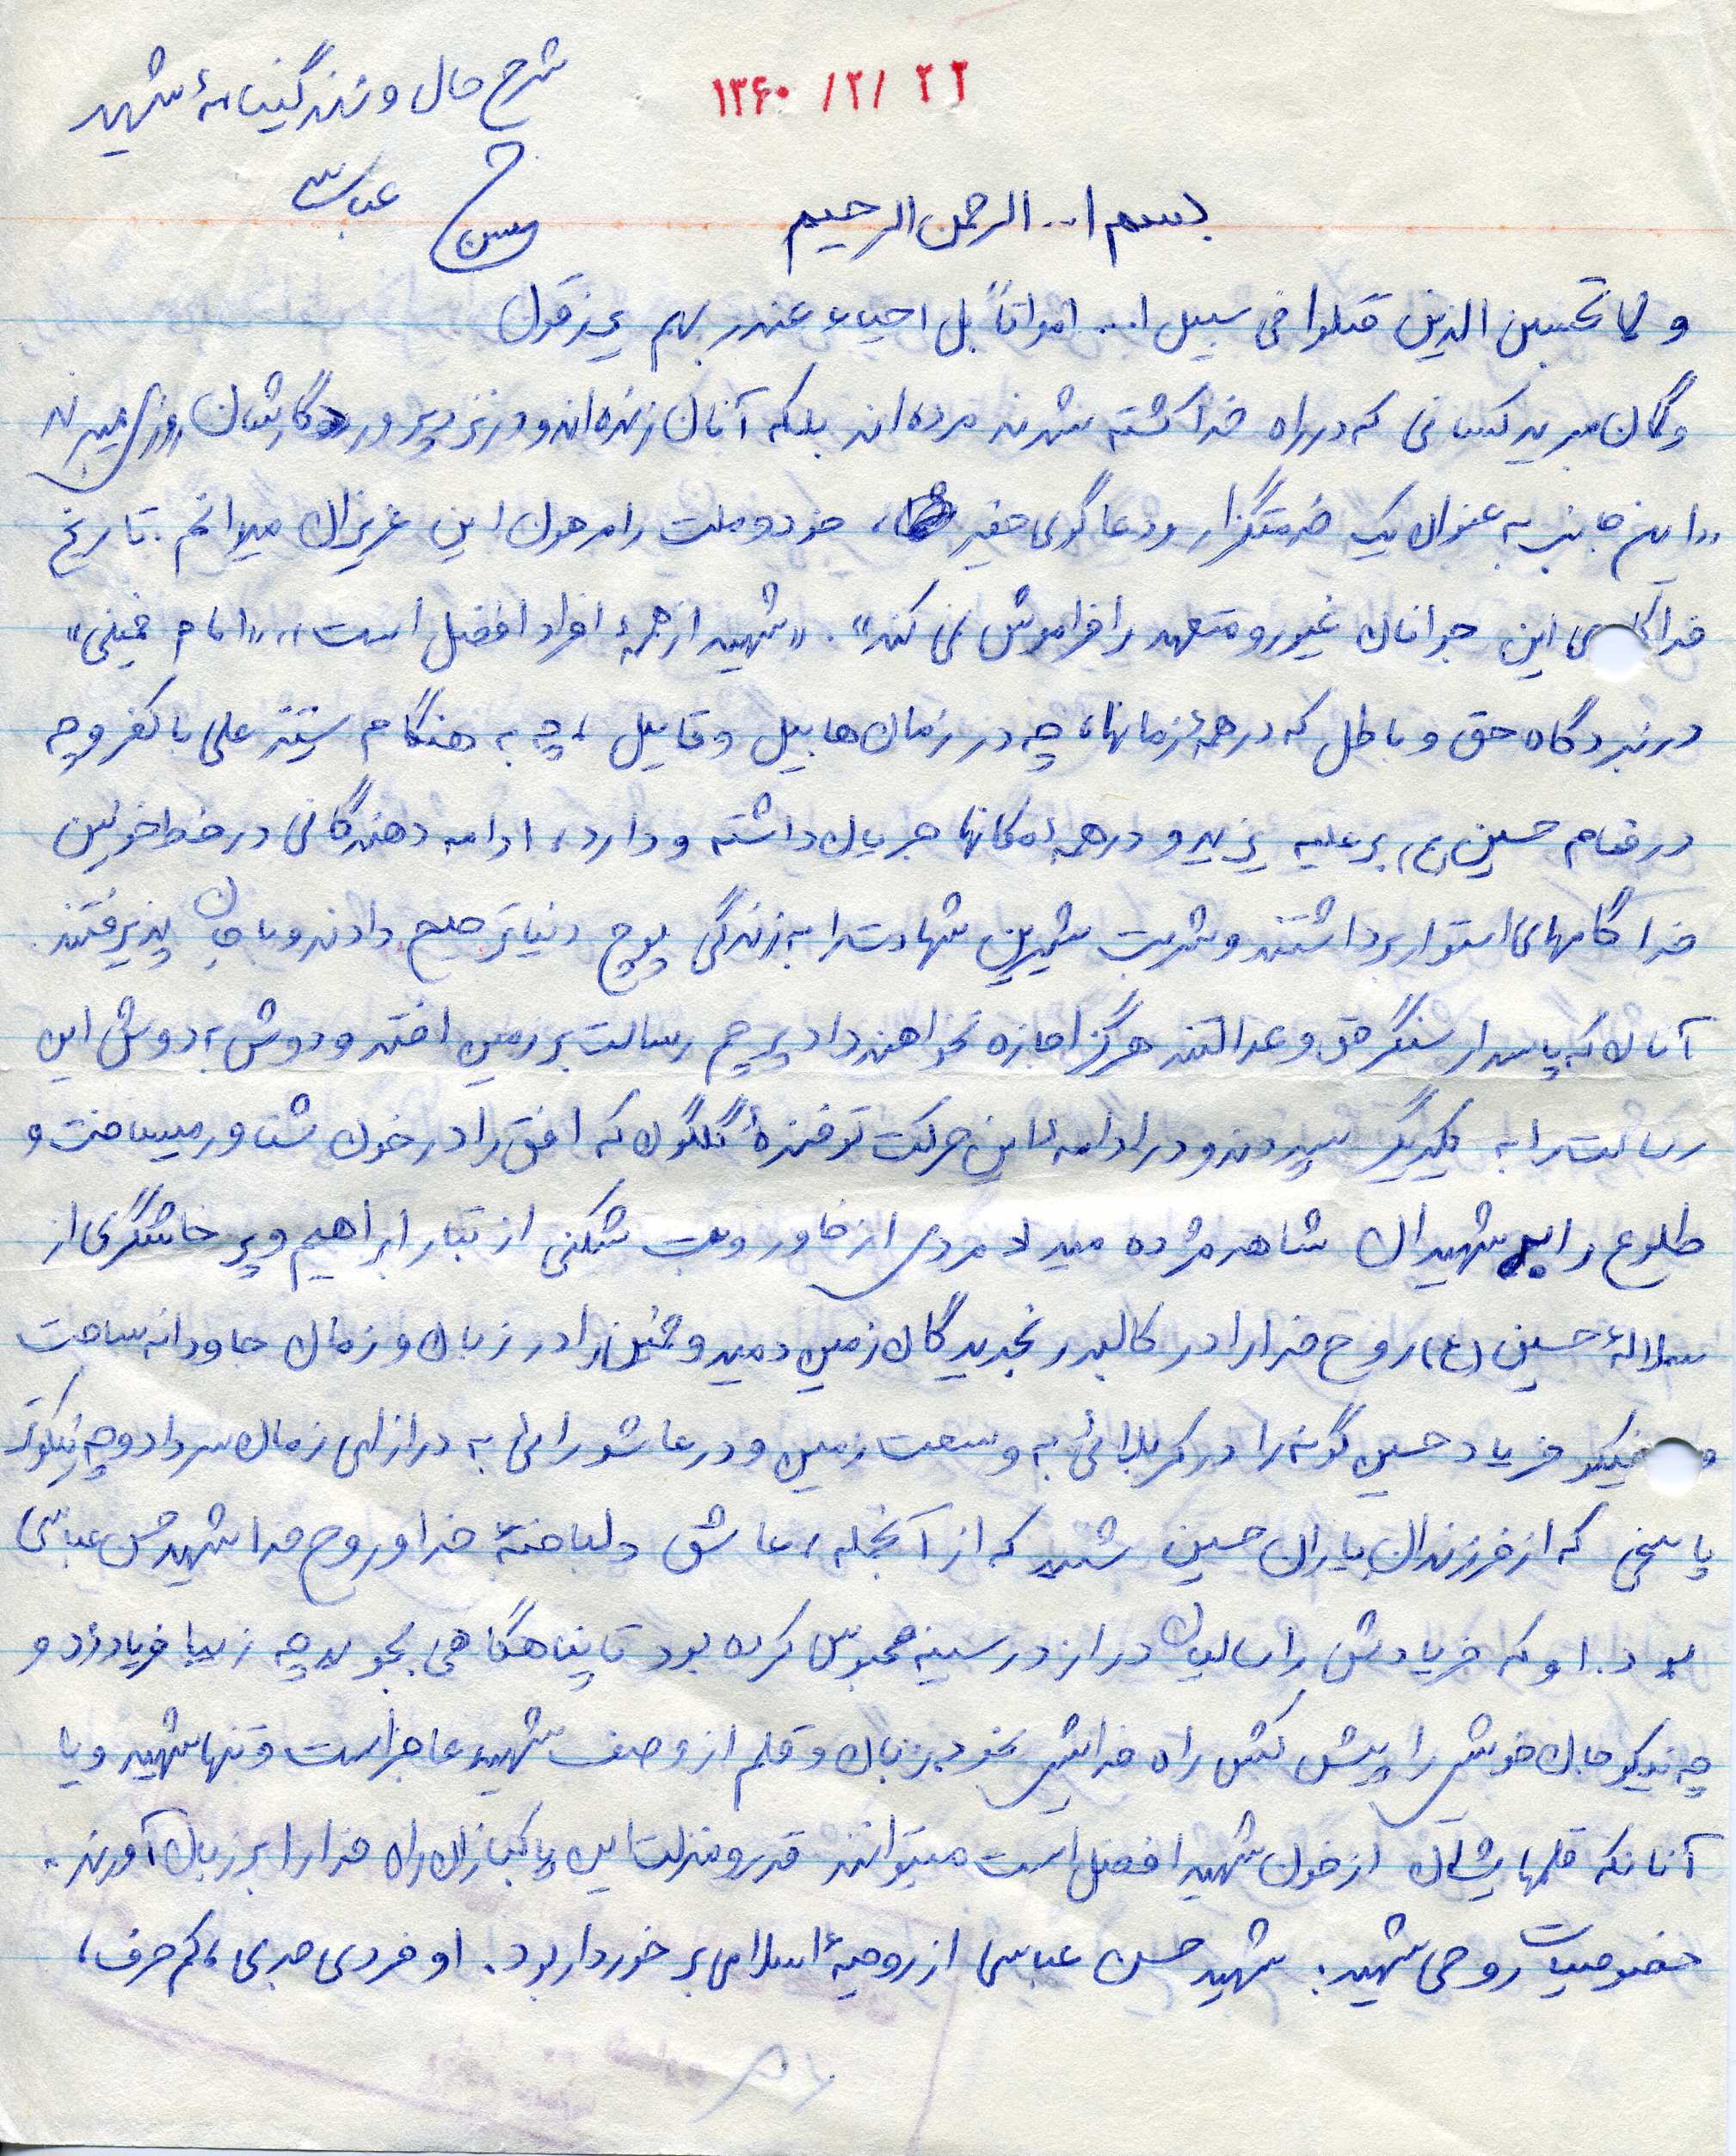 شرح حال و زندگینامهٔ شهید
حسن عباسی
۱۳۶۰ /۲/ ۲۲
بسم ا... الرحمن الرحیم
و لا تحسبن الذین قتلوا فی سبیل ا... امواتاً بل احیاء عند ربهم یرزقون
و گمان مبرید کسانی که در راه خدا کشته شدند مرده‌اند بلکه آنان زنده‌اند و در نزد پروردگارشان روزی میبرند
"اینجانب به عنوان یک خدمتگزار و دعاگوی حقیر، خود و ملت را مرهون این عزیزان میدانم. تاریخ
فداکاری این جوانان غیور و متعهد را فراموش نمی کند". "شهید از همهٔ افراد افضل است"، "امام خمینی"
در نبردگاه حق و باطل که در همهٔ زمانها، چه در زمان هابیل و قابیل، چه به هنگام ستیز علی با کفر و چه
در قیام حسین (ع) بر علیه یزید و در همهٔ مکانها جریان داشته و دارد، ادامه دهندگانی در خط خونین
خدا گامهای استوار برداشتند و شربت شیرین شهادت را به زندگی پوچ دنیا ترجیح دادند و با جان پذیرفتند.
آنان که پاسدار سنگر حق و عدالتند هرگز اجازه نخواهند داد پرچم رسالت بر زمین افتد و دوش به دوش این
رسالت را به یکدیگر سپردند و در ادامه این حرکت توفندهٔ گلگون که افق را در خون شناور میساخت و
طلوع را به شهیدان شاهد مژده میداد مردی از خاور و بت شکنی از تبار ابراهیم و پرخاشگری از
سلالهٔ حسین (ع) روح خدا را در کالبد رنجدیدگان زمین دمید و خمینی را در زبان و زمان جاودانه ساخت
و نیکو فریاد حسین گونه را در کربلائی به وسعت زمین و در عاشورائی به درازای زمان سرداد و چه نیکوتر
پاسخی که از فرزندان یاران حسین شنید که از آنجمله، عاشق دلباختهٔ خدا و روح خدا شهید حسن عباسی
بود. او که فریادش را سالیان دراز در سینه محبوس کرده بود تا پناهگاهی بجوید چه زیبا فریاد زد و
چه نیکو جان خویش را پیش کش راه خدایش نمود. زبان و قلم از وصف شهید عاجز است و تنها شهید و یا
آنانکه قلمهایشان از خون شهید افضل است میتوانند قدر و منزلت این پاکبازان راه خدا را بر زبان آورند.
خصوصیات روحی شهید: شهید حسن عباسی از روحیهٔ اسلامی برخوردار بود. او فردی جدی، کم حرف،